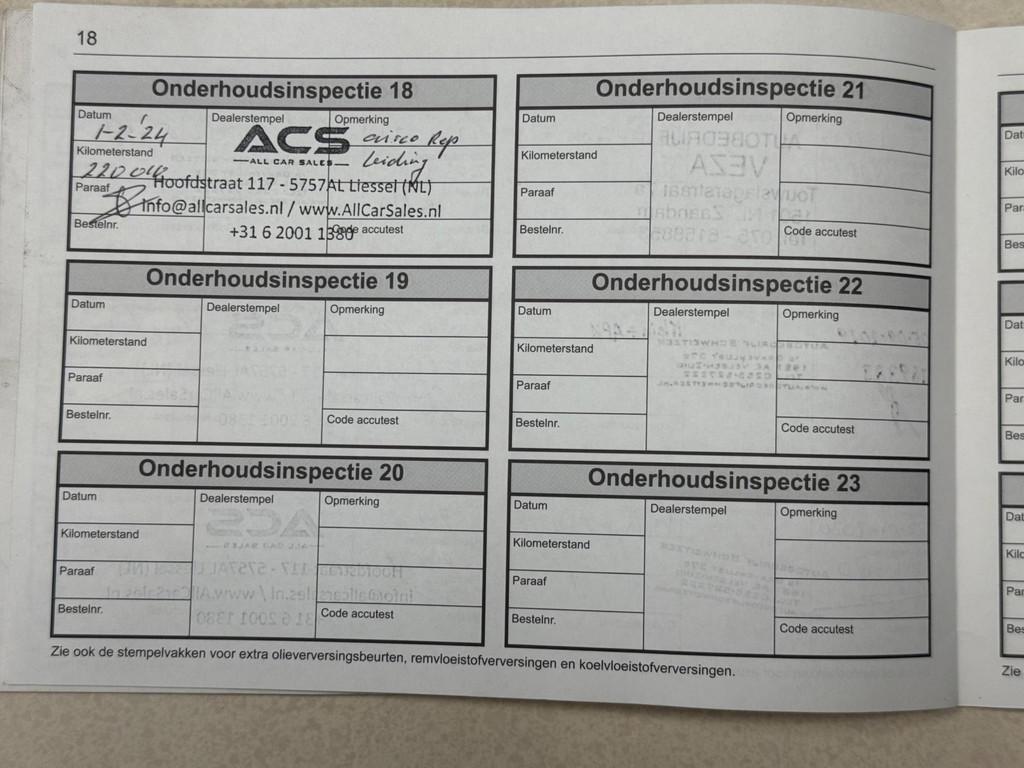 18
Onderhoudsinspectie 18
Datum
1-2-24
Dealerstempel
ACS
ALL CAR SALES
Opmerking
airco Rep
leiding
Kilometerstand
Hoofdstraat 117 - 5757AL Liessel (NL)
Paraaf
info@allcarsales.nl / www.AllCarSales.nl
Bestelnr.
+31 6 2001 1380
Code accutest
Onderhoudsinspectie 19
Datum
Dealerstempel
Opmerking
Kilometerstand
Paraaf
Bestelnr.
Code accutest
Onderhoudsinspectie 20
Datum
Dealerstempel
Opmerking
Kilometerstand
Paraaf
Bestelnr.
Code accutest
Onderhoudsinspectie 21
Datum
Dealerstempel
Opmerking
Kilometerstand
Paraaf
Bestelnr.
Code accutest
Onderhoudsinspectie 22
Datum
Dealerstempel
Opmerking
Kilometerstand
Paraaf
Bestelnr.
Code accutest
Onderhoudsinspectie 23
Datum
Dealerstempel
Opmerking
Kilometerstand
Paraaf
Bestelnr.
Code accutest
Zie ook de stempelvakken voor extra olieverversingsbeurten, remvloeistofverversingen en koelvloeistofverversingen.
Zie